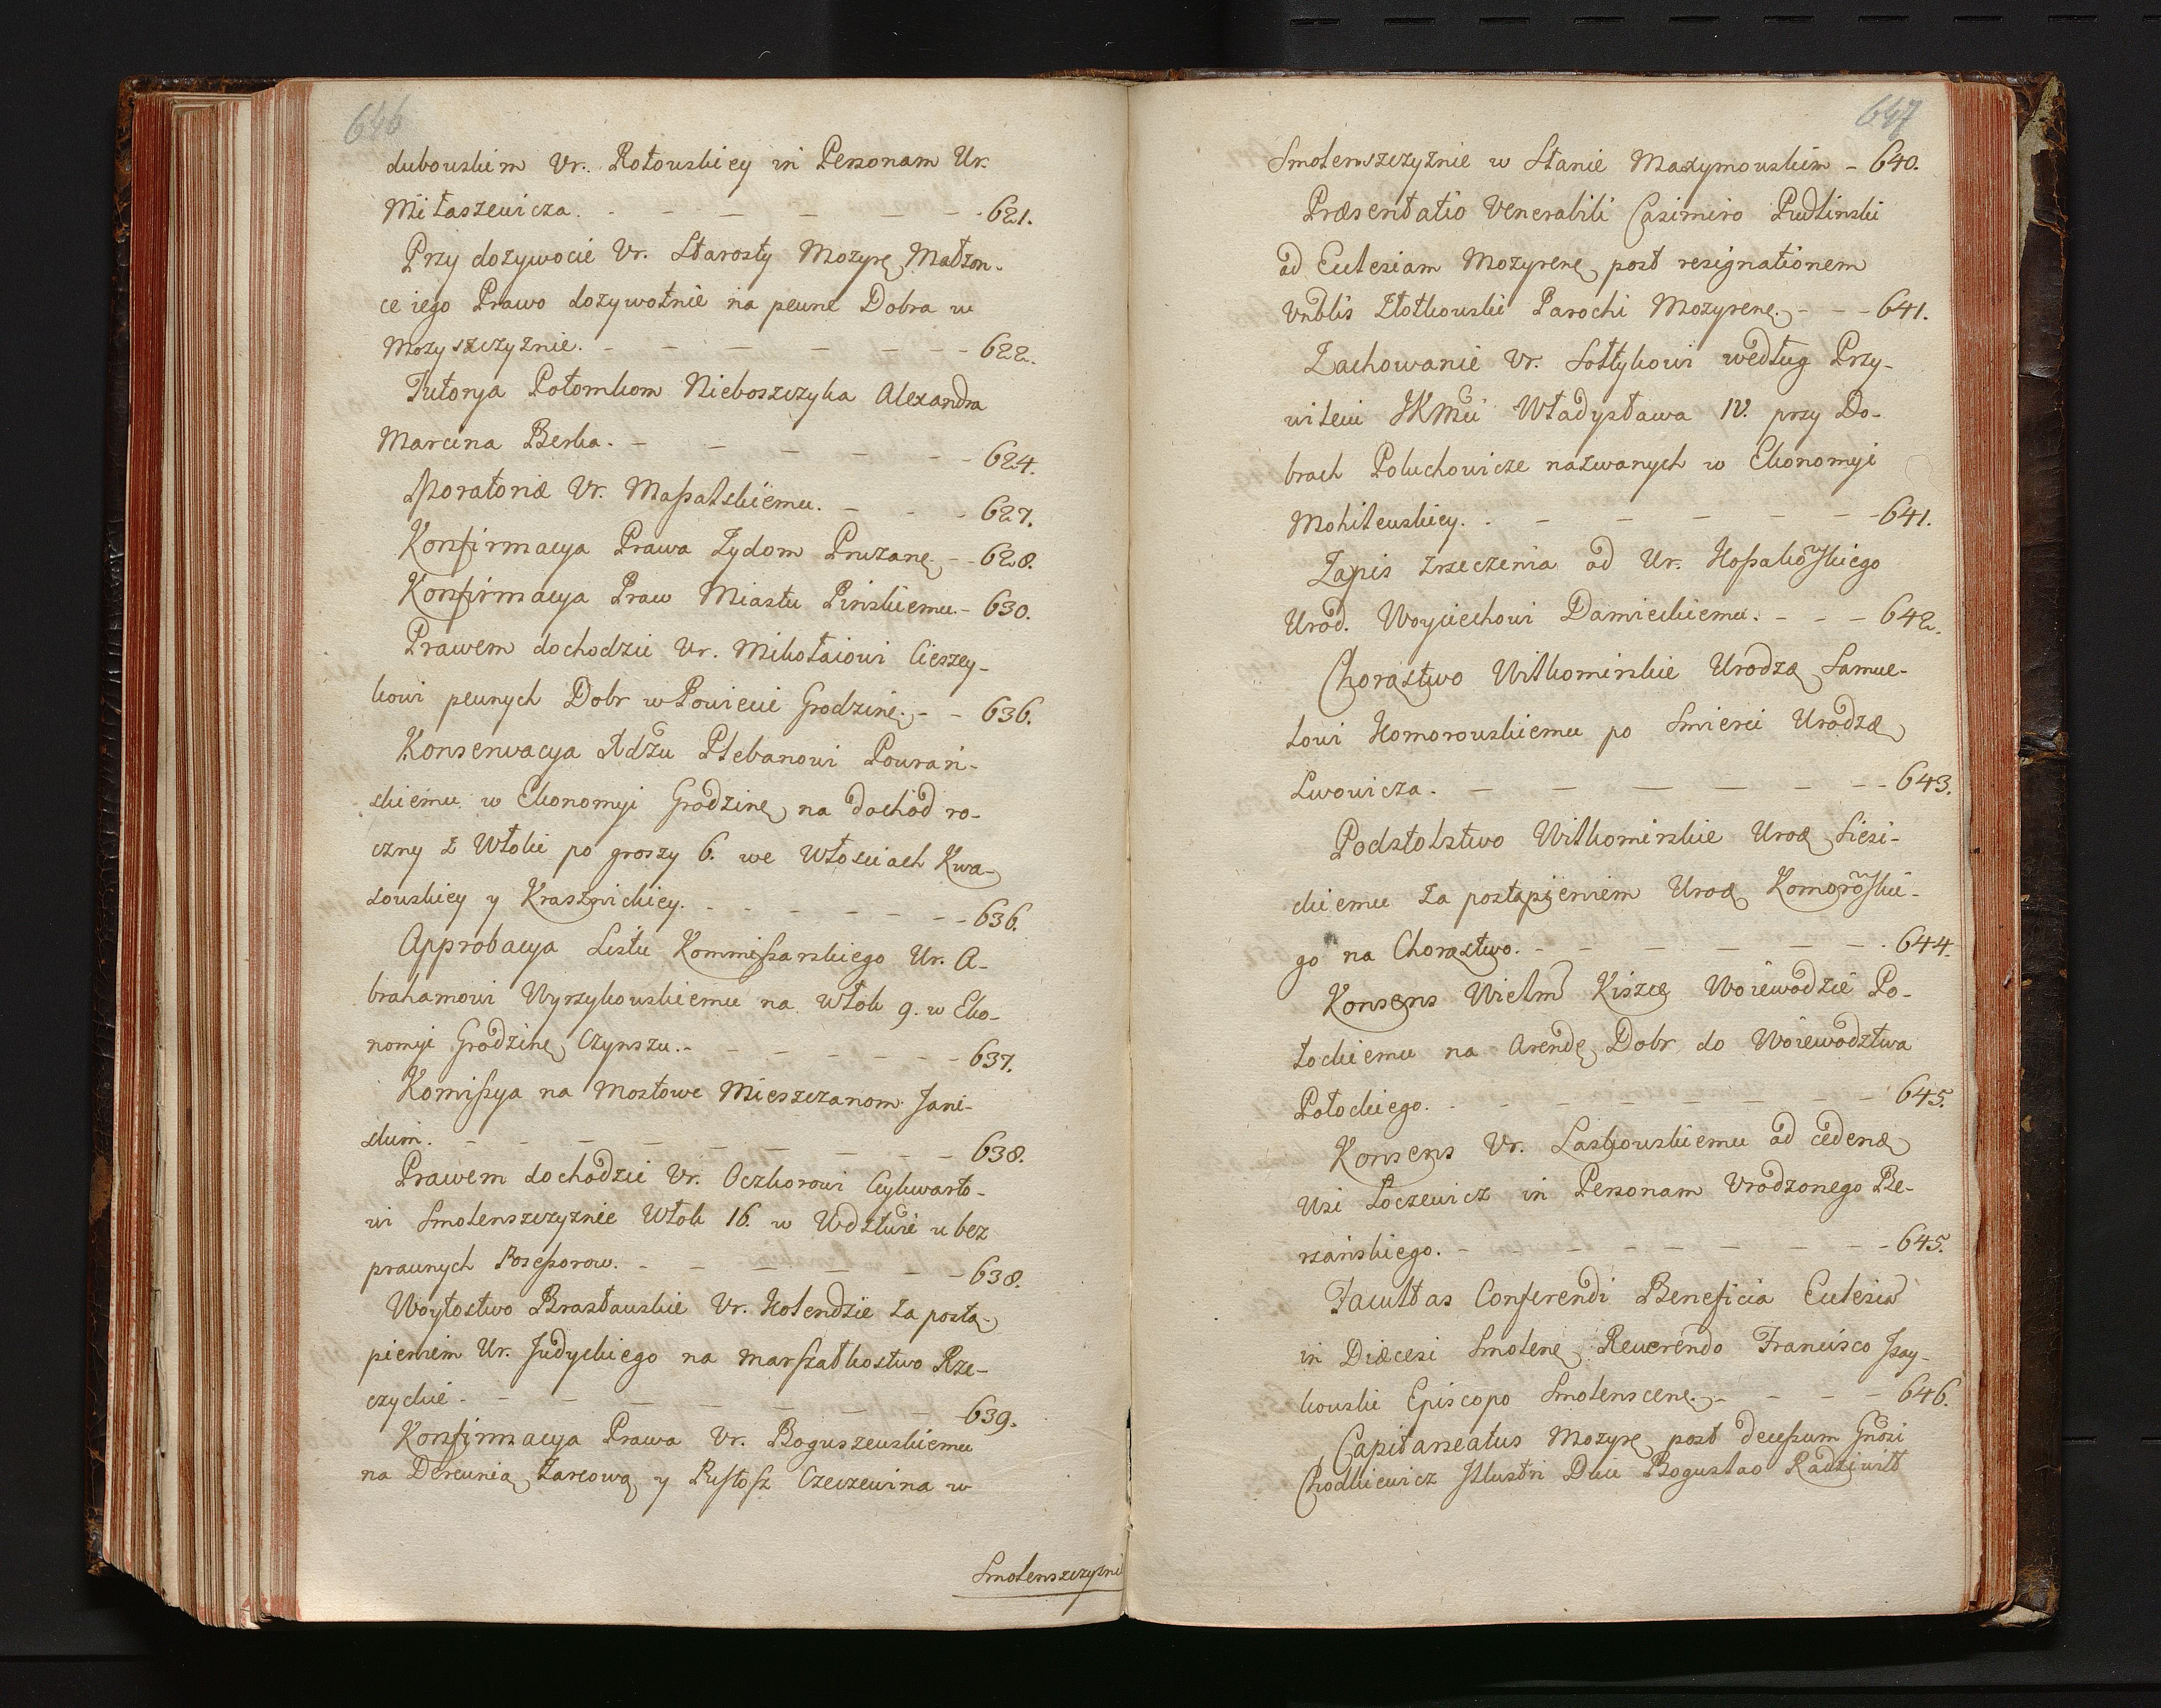 646
dubowskim Ur. Rotowskiey in Personam Ur.
Miłaszewicza. - - - - - - 621.
Przy dozywocie Ur. Starosty Mozyrę Małzon-
ce iego Prawo dozywotnie na pewne Dobra w
Mozyszczyznie. - - - - - - 622.
Tutorya Potomkom Nieboszczyka Alexandra
Marcina Beska. - - - - - - 624.
Moratoriæ Ur. Massalskiemu. - - - 627.
Konfirmacya Prawa Zydom Pruzanę. - - 628.
Konfirmacya Praw Miastu Pinskiemu. - 630.
Prawem dochodzic Ur. Mikołaiowi Cieszey-
kowi pewnych Dobr w Powiecie Grodzinę. - - 636.
Konserwacya Xdzu Plebanowi Powrań-
skiemu w Ekonomyi Grodzinę na dochod ro-
czny z Włoki po groszy 6. we Włosciach Kwa-
sowskiey y Krasznickiey. - - - - - - 636.
Approbacya Listu Kommissarskiego Ur. A-
brahamowi Wyrzykowskiemu na Włok 9. w Eko-
nomyi Grodzinę Czynszu. - - - - - - 637.
Komissya na Mostowe Mieszczanom Jani-
skim. - - - - - - - - 638.
Prawem dochodzic Ur. Oczkorowi Cykwarto-
wi Smolenszczyznie Włok 16. w Wdztwie u bez
prawnych Possessorow. - - - - - - 638.
Woytostwo Brasławskie Ur. Holendzie za postą-
pieniem Ur. Judyckiego na Marszałkostwo Rze-
czyckie - - - - - - - - 639.
Konfirmacya Prawa Ur. Boguszewskiemu
na Derewnią Zarcową y Pustosz Czeczewina w
Smolenszczyznie
647
Smolenszczyznie w Stanie Maxymowskim - 640.
Præsentatio Venerabili Casimiro Pudlinski
ad Ecclesiam Mozyrenę post resignationem
Vnblis Złotkowski Parochi Mozyrenę. - - - 641.
Zachowanie Ur. Sołtykowi według Przy-
wileiu JKMci Władysława IV. przy Do-
brach Poluchowicze nazwanych w Ekonomyi
Mohilewskiey. - - - - - - 641.
Zapis zrzeczenia od Ur. Kossakoskiego
Urod. Woyciechowi Damieckiemu. - - - 642.
Chorąstwo Wiłkomirskie Urodzę Samue-
lowi Komorowskiemu po Smierci Urodzę
Lwowicza. - - - - - - - 643.
Podstolstwo Wiłkomirskie Urodę Siesi-
ckiemu za postąpieniem Urodę Komoroski-
go na Chorąstwo. - - - - - - 644.
Konsens Wielm Kiszcę Woiewodzie Po-
łockiemu na Arendę Dobr do Woiewodztwa
Połockiego. - - - - - - - 645.
Konsens Ur. Laskowskiemu ad cedenę
Wsi Loczewicz in Personam Vrodzonego Be-
rzańskiego. - - - - - - - 645.
Facultas Conferendi Beneficia Ecclesia
in Diæcesi Smolenę Reuerendo Francisco Isay-
kowski Episcopo Smolenscenę. - - - - 646.
Capitaneatus Mozyrę post decessum Gnosi
Chodkiewicz Illustri Duci Boguslao Radziwił